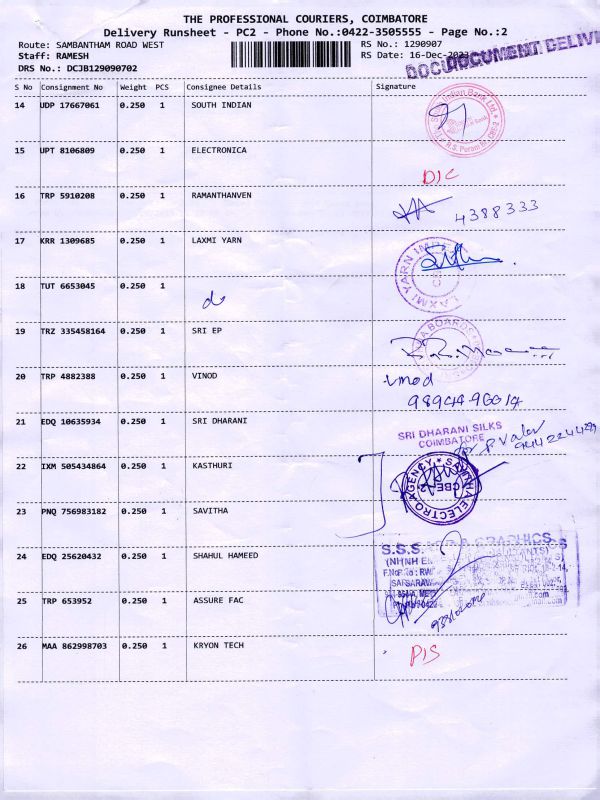 THE PROFESSIONAL COURIERS, COIMBATORE
Delivery Runsheet - PC2 - Phone No.:0422-3505555 - Page No.:2
Route: SAMBANTHAM ROAD WEST RS No.: 1290907
Staff: RAMESH RS Date: 16-Dec-2023
DRS No.: DCJB129090702 DOCUMENT DELIV
S No Consignment No Weight PCS Consignee Details Signature
14 UDP 17667061 0.250 1 SOUTH INDIAN
15 UPT 8106809 0.250 1 ELECTRONICA D/C
16 TRP 5910208 0.250 1 RAMANTHANVEN 4388333
17 KRR 1309685 0.250 1 LAXMI YARN
LAXMI YARN
18 TUT 6653045 0.250 1 do
19 TRZ 335458164 0.250 1 SRI EP
20 TRP 4882388 0.250 1 VINOD vinod
21 EDQ 10635934 0.250 1 SRI DHARANI
SRI DHARANI SILKS
COIMBATORE
22 IXM 505434864 0.250 1 KASTHURI
23 PNQ 756983182 0.250 1 SAVITHA
AGENCY SAVITHA ELECTRO
CBE
24 EDQ 25620432 0.250 1 SHAHUL HAMEED
S.S.S. GRAPHICS
25 TRP 653952 0.250 1 ASSURE FAC
26 MAA 862998703 0.250 1 KRYON TECH P/S